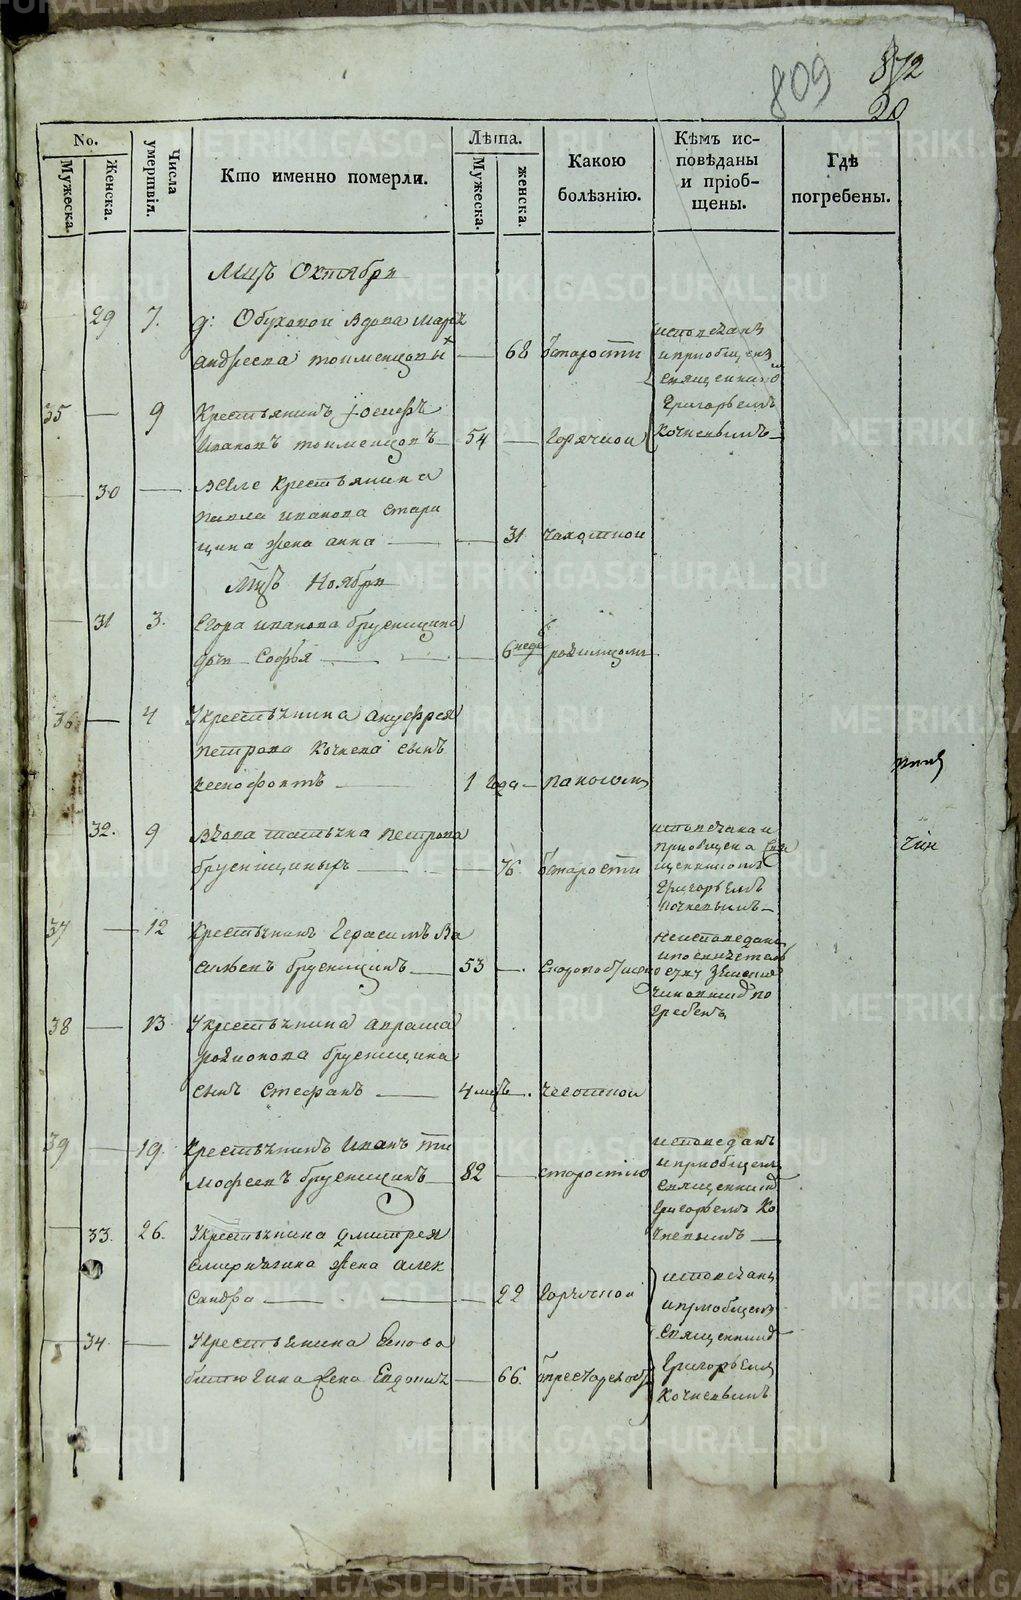 809
872
20
No.
Мужеска.
Женска.
Числа умертвія.
Кто именно померли.
Лѣта.
Мужеска.
женска.
Какою болѣзнію.
Кѣмъ исповѣданы и пріобщены.
Гдѣ погребены.
Мцъ Октября
29 7. д: Обуховой вдова Марѳа
Андреева Тоименцовы 68 старости
исповѣдана
и приобщена
священникомъ
Григорьемъ
Кочневымъ
35 9 Крестьянинъ Іосифъ
Ивановъ Тоименцовъ 54 Горячкой
30 Всѣле Крестьянина
Павла Иванова Стари
цина жена Анна 31 чахоткой
Мцъ Ноября
31 3. Егора Иванова Брусницина
дочь Софья 6 неде родимцомъ
36 4 Укрестьянина Ануфрея
Петрова Кочнева сынъ
Ксенофонтъ 1 года поносомъ
32. 9 Вдова Татьяна Петрова
Брусницыныхъ 76 старости
исповѣдана и
приобщена свя
щенникомъ
Григорьемъ
Кочневымъ
37 12 Крестьянинъ Герасимъ Ва
сильевъ Брусницинъ 53
неисповедана
чиновник по
гребенъ
38 13 Укрестьянина Аврама
Родионова Брусницина
сынъ Стефанъ 4 мцъ. чесоткой
39 19. Крестьянинъ Иванъ Ти
мофеевъ Брусницинъ 82 старостию
исповеданъ
и приобщенъ
священникомъ
Григорьемъ Ко
чневымъ
33. 26. Укрестьянина Дмитрея
Смирнягина жена Алек
сандра 22 Горячкой
исповѣдана
и приобщена
священникомъ
Григорьемъ
Кочневымъ
34 Укрестьянина
жена Евдокия 66.
чин
METRIKI.GASO-URAL.RU